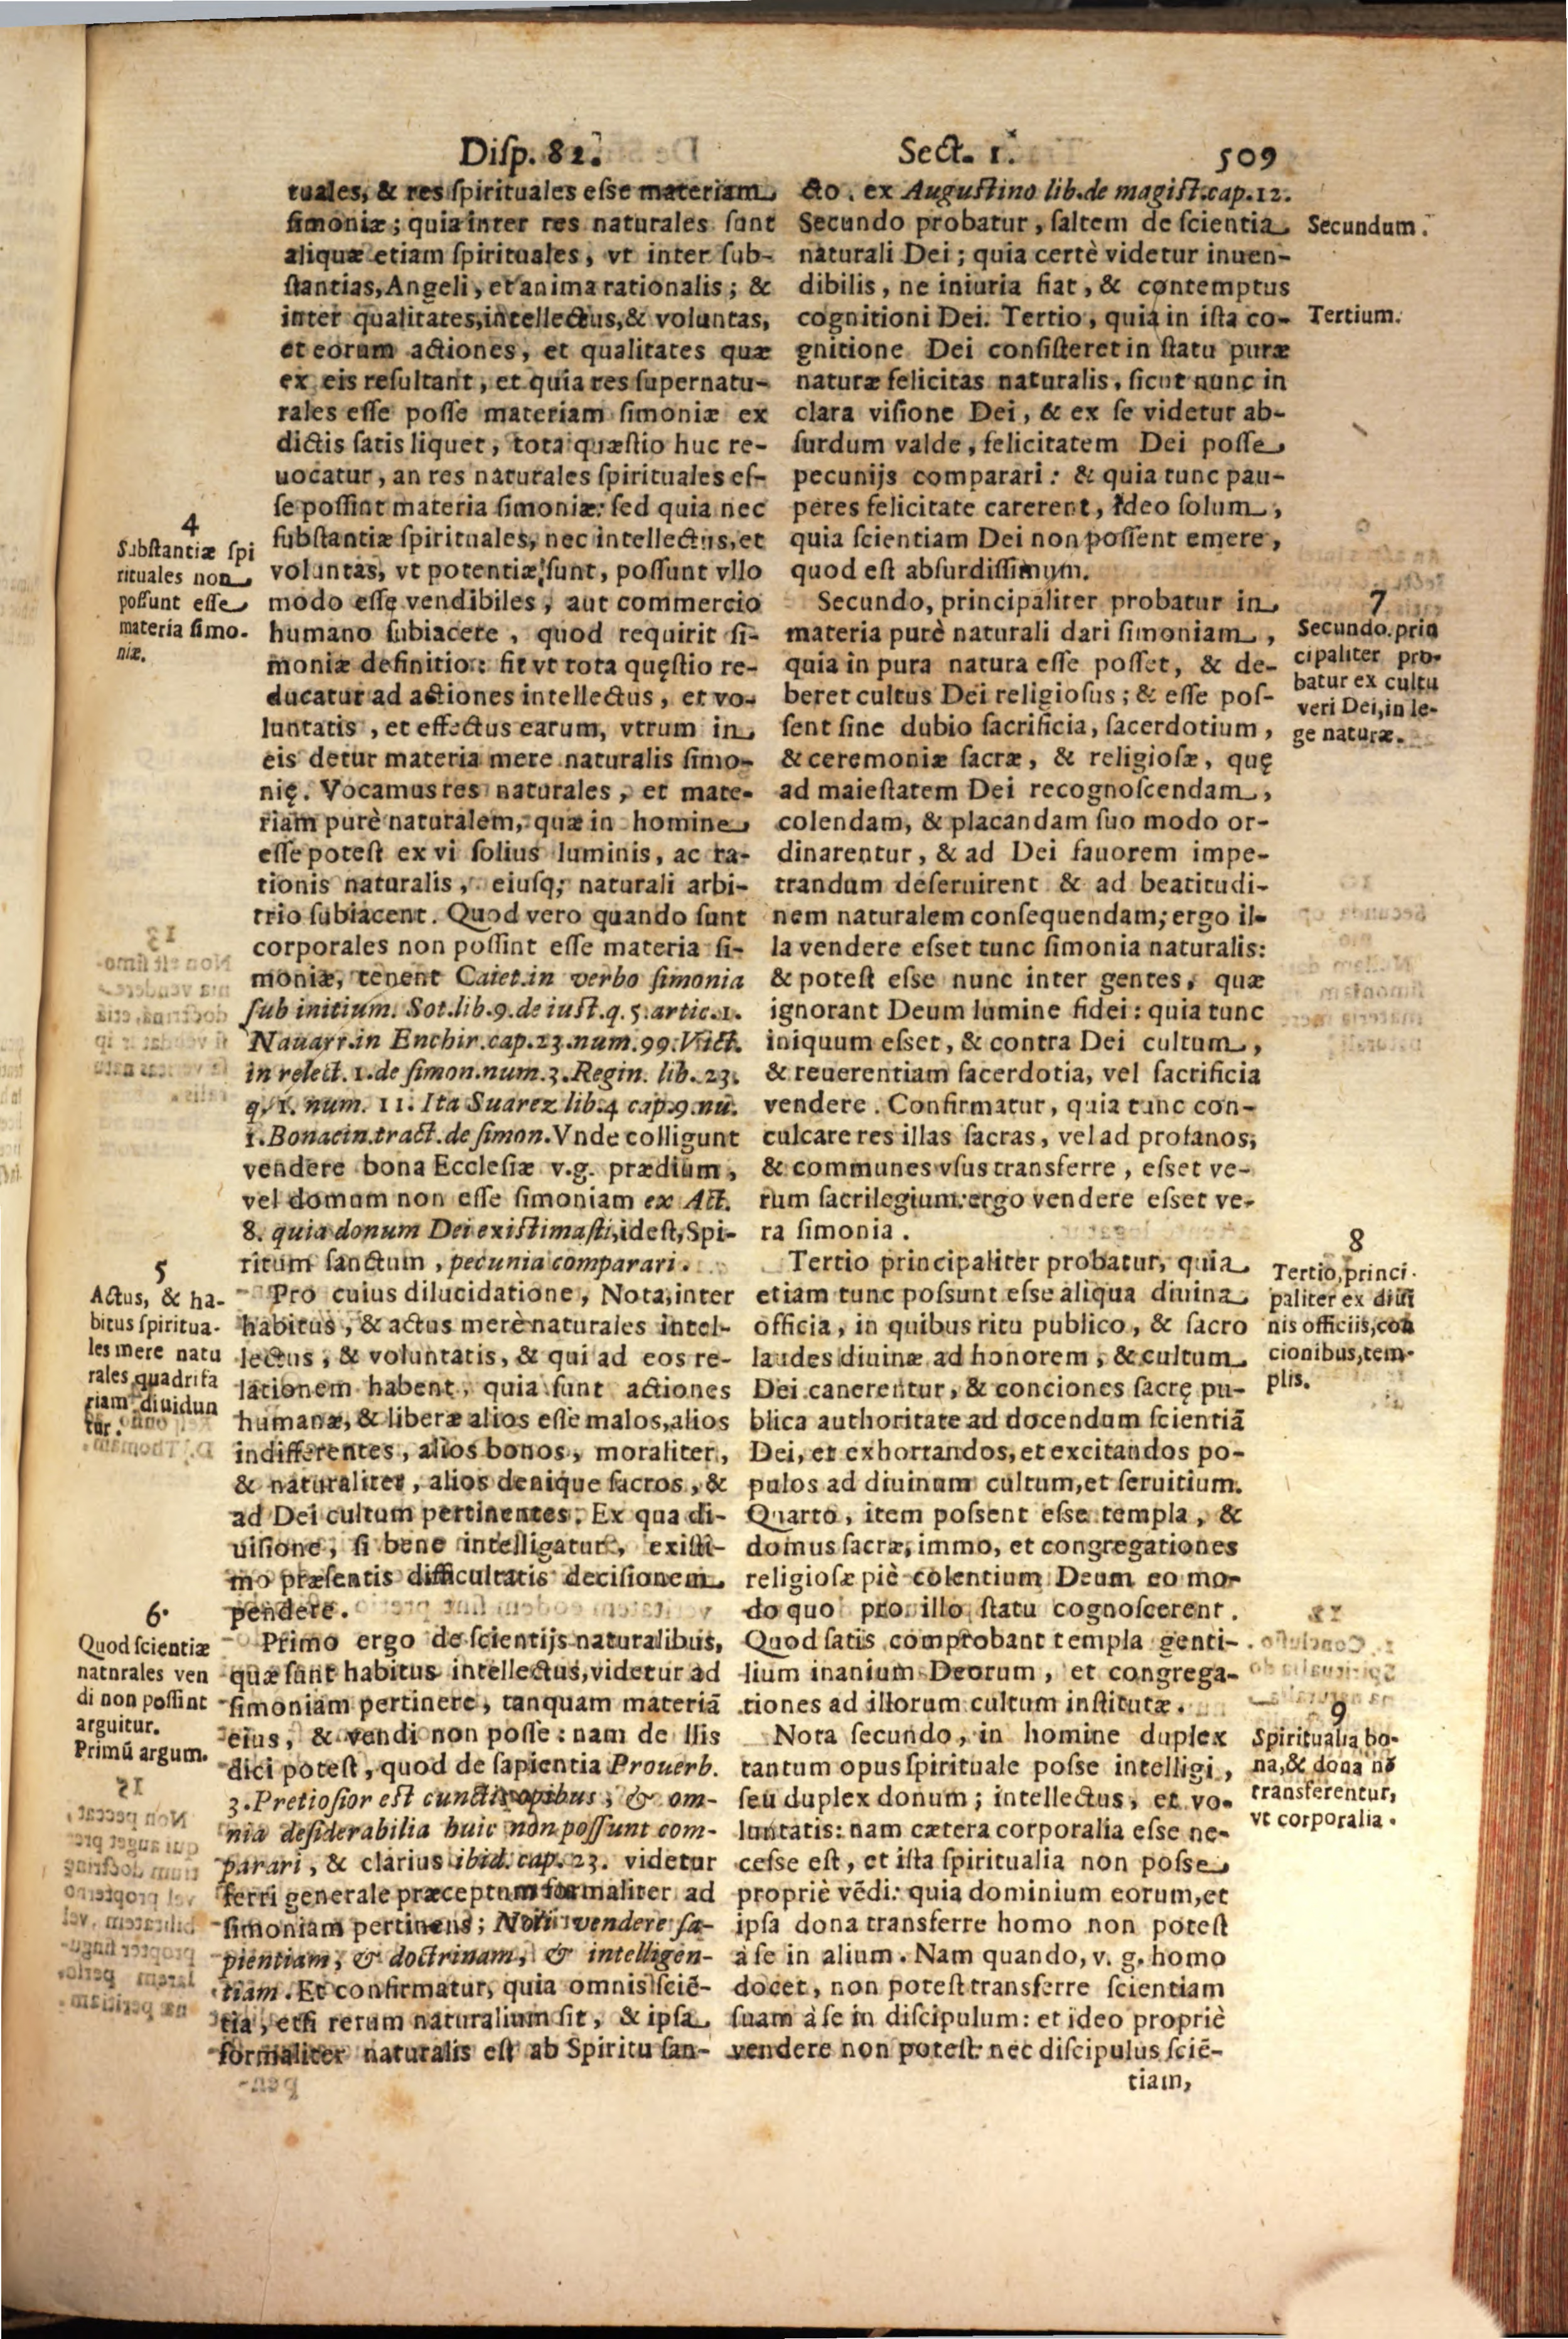 Disp. 82. Sect. 1. 509
tuales, & res spirituales esse materiam
simoniæ; quia inter res naturales sunt
aliquæ etiam spirituales, vt inter sub-
stantias, Angeli, et anima rationalis; &
inter qualitates, intellectus, & voluntas,
et eorum actiones, et qualitates quæ
ex eis resultant, et quia res supernatu-
rales esse posse materiam simoniæ ex
dictis satis liquet, tota quæstio huc re-
uocatur, an res naturales spirituales es-
se possint materia simoniæ: sed quia nec
substantiæ spirituales, nec intellectus, et
voluntas, vt potentiæ sunt, possunt vllo
modo esse vendibiles, aut commercio
humano subiacere, quod requirit si-
moniæ definitio: fit vt tota quęstio re-
ducatur ad actiones intellectus, et vo-
luntatis, et effectus earum, vtrum in
eis detur materia mere naturalis simo-
nię. Vocamus res naturales, et mate-
riam purè naturalem, quæ in homine
esse potest ex vi solius luminis, ac ra-
tionis naturalis, eiusq; naturali arbi-
trio subiacent. Quod vero quando sunt
corporales non possint esse materia si-
moniæ, tenent Caiet. in verbo simonia
sub initium. Sot. lib. 9. de iust. q. 5. artic. 1.
Nauarr. in Enchir. cap. 23. num. 99. Vict.
in relect. 1. de simon. num. 3. Regin. lib. 23.
q. 1. num. 11. Ita Suarez lib. 4 cap. 9. nũ.
1. Bonacin. tract. de simon. Vnde colligunt
vendere bona Ecclesiæ v.g. prædium,
vel domum non esse simoniam ex Act.
8. quia donum Dei existimasti, idest, Spi-
ritum sanctum, pecunia comparari.
Pro cuius dilucidatione, Nota, inter
habitus, & actus merè naturales intel-
lectus, & voluntatis, & qui ad eos re-
lationem habent, quia sunt actiones
humanæ, & liberæ alios esse malos, alios
indifferentes, alios bonos, moraliter,
& naturaliter, alios denique sacros, &
ad Dei cultum pertinentes. Ex qua di-
uisione, si bene intelligatur, existi-
mo præsentis difficultatis decisionem
pendere.
Primo ergo de scientijs naturalibus,
quæ sunt habitus intellectus, videtur ad
simoniam pertinere, tanquam materiã
eius, & vendi non posse: nam de illis
dici potest, quod de sapientia Prouerb.
3. Pretiosior est cunctis opibus, & om-
nia desiderabilia huic non possunt com-
parari, & clarius ibid. cap. 23. videtur
ferri generale præceptum formaliter ad
simoniam pertinens; Noli vendere sa-
pientiam, & doctrinam, & intelligen-
tiam. Et confirmatur, quia omnis sciẽ-
tia, etsi rerum naturalium sit, & ipsa
formaliter naturalis est ab Spiritu san-
4
Substantiæ spi
rituales non
possunt esse
materia simo-
niæ.
5
Actus, & ha-
bitus spiritua-
les mere natu
rales quadrifa
riam diuidun
tur.
6.
Quod scientiæ
natnrales ven
di non possint
arguitur.
Primũ argum.
cto. ex Augustino lib. de magist. cap. 12.
Secundo probatur, saltem de scientia
naturali Dei; quia certè videtur inuen-
dibilis, ne iniuria fiat, & contemptus
cognitioni Dei. Tertio, quia in ista co-
gnitione Dei consisteret in statu puræ
naturæ felicitas naturalis, sicut nunc in
clara visione Dei, & ex se videtur ab-
surdum valde, felicitatem Dei posse
pecunijs comparari: & quia tunc pau-
peres felicitate carerent, ideo solum,
quia scientiam Dei non possent emere,
quod est absurdissimum.
Secundo, principaliter probatur in
materia purè naturali dari simoniam,
quia in pura natura esse posset, & de-
beret cultus Dei religiosus; & esse pos-
sent sine dubio sacrificia, sacerdotium,
& ceremoniæ sacræ, & religiosæ, quę
ad maiestatem Dei recognoscendam,
colendam, & placandam suo modo or-
dinarentur, & ad Dei fauorem impe-
trandum deseruirent & ad beatitudi-
nem naturalem consequendam; ergo il-
la vendere esset tunc simonia naturalis:
& potest esse nunc inter gentes, quæ
ignorant Deum lumine fidei: quia tunc
iniquum esset, & contra Dei cultum,
& reuerentiam sacerdotia, vel sacrificia
vendere. Confirmatur, quia tunc con-
culcare res illas sacras, vel ad profanos,
& communes vsus transferre, esset ve-
rum sacrilegium: ergo vendere esset ve-
ra simonia.
Tertio principaliter probatur, quia
etiam tunc possunt esse aliqua diuina
officia, in quibus ritu publico, & sacro
laudes diuinæ ad honorem, & cultum
Dei canerentur, & conciones sacrę pu-
blica authoritate ad docendum scientiã
Dei, et exhortandos, et excitandos po-
pulos ad diuinum cultum, et seruitium.
Quarto, item possent esse templa, &
domus sacræ, immo, et congregationes
religiosæ piè colentium Deum eo mo-
do quo pro illo statu cognoscerent.
Quod satis comprobant templa genti-
lium inanium Deorum, et congrega-
tiones ad illorum cultum institutæ.
Nota secundo, in homine duplex
tantum opus spirituale posse intelligi,
seu duplex donum; intellectus, et vo-
luntatis: nam cætera corporalia esse ne-
cesse est, et ista spiritualia non posse
propriè vẽdi: quia dominium eorum, et
ipsa dona transferre homo non potest
à se in alium. Nam quando, v. g. homo
docet, non potest transferre scientiam
suam à se in discipulum: et ideo propriè
vendere non potest: nec discipulus sciẽ-
tiam,
Secundum.
Tertium.
7
Secundo. prin
cipaliter pro-
batur ex cultu
veri Dei, in le-
ge naturæ.
8
Tertio, princi.
paliter ex diui
nis officiis, con
cionibus, tem-
plis.
9
Spiritualia bo-
na, & dona nõ
transferentur,
vt corporalia.